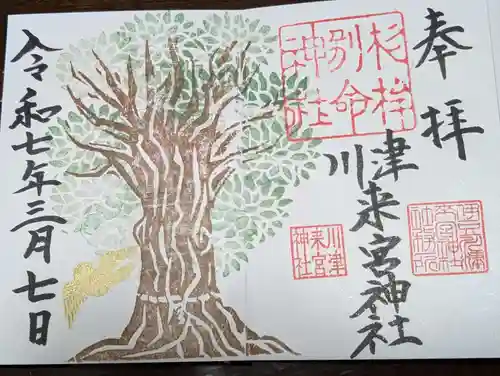 奉拝
杉桙
別命
神社
川津来宮神社
川津
来宮
神社
令和七年三月七日